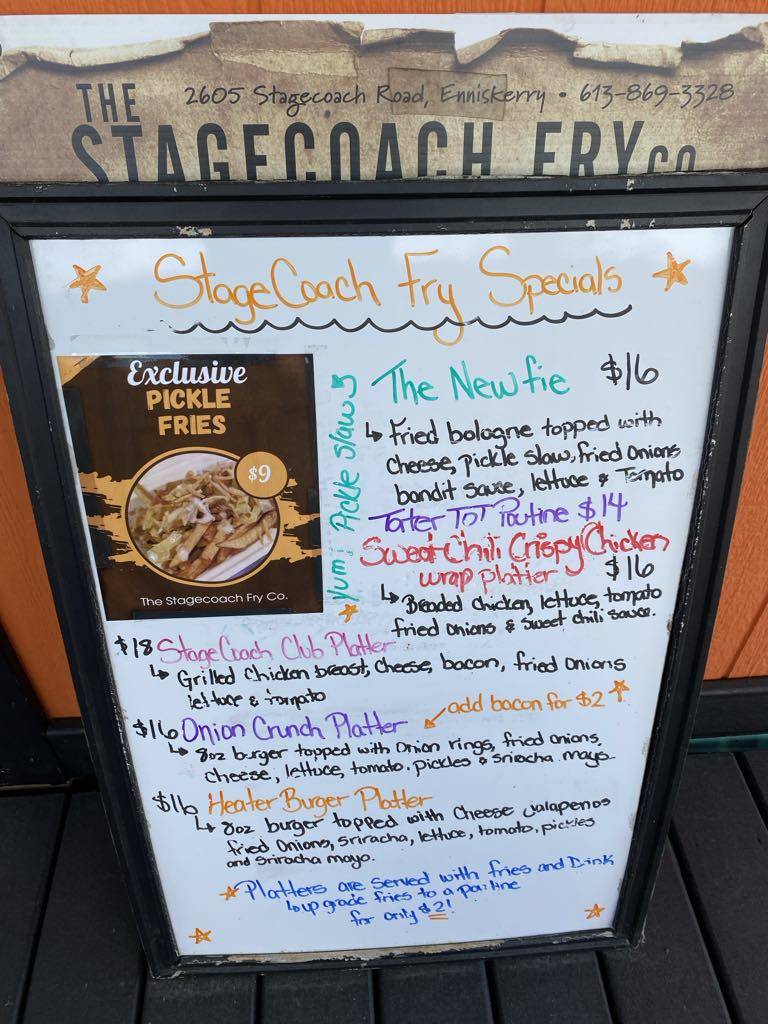 THE
2605 Stagecoach Road, Enniskerry • 613-869-3328
STAGECOACH FRY CO
StageCoach Fry Specials
Exclusive
PICKLE
FRIES
$9
The Stagecoach Fry Co.
Yum! Pickle slaw
The Newfie $16
↳ Fried bologne topped with
cheese, pickle slaw, fried onions
bandit sauce, lettuce & Tomato
Tater TOT Poutine $14
Sweet Chili Crispy Chicken
wrap platter $16
↳ Breaded chicken, lettuce, tomato
fried onions & sweet chili sauce.
$18 StageCoach Club Platter
↳ Grilled chicken breast, cheese, bacon, fried onions
lettuce & tomato
$16 Onion Crunch Platter ↙ add bacon for $2
↳ 8oz burger topped with onion rings, fried onions,
cheese, lettuce, tomato, pickles & sriracha mayo.
$16 Heater Burger Platter
↳ 8oz burger topped with cheese jalapenos
fried onions, sriracha, lettuce, tomato, pickles
and sriracha mayo.
Platters are served with fries and Drink
↳ upgrade fries to a poutine
for only $2!